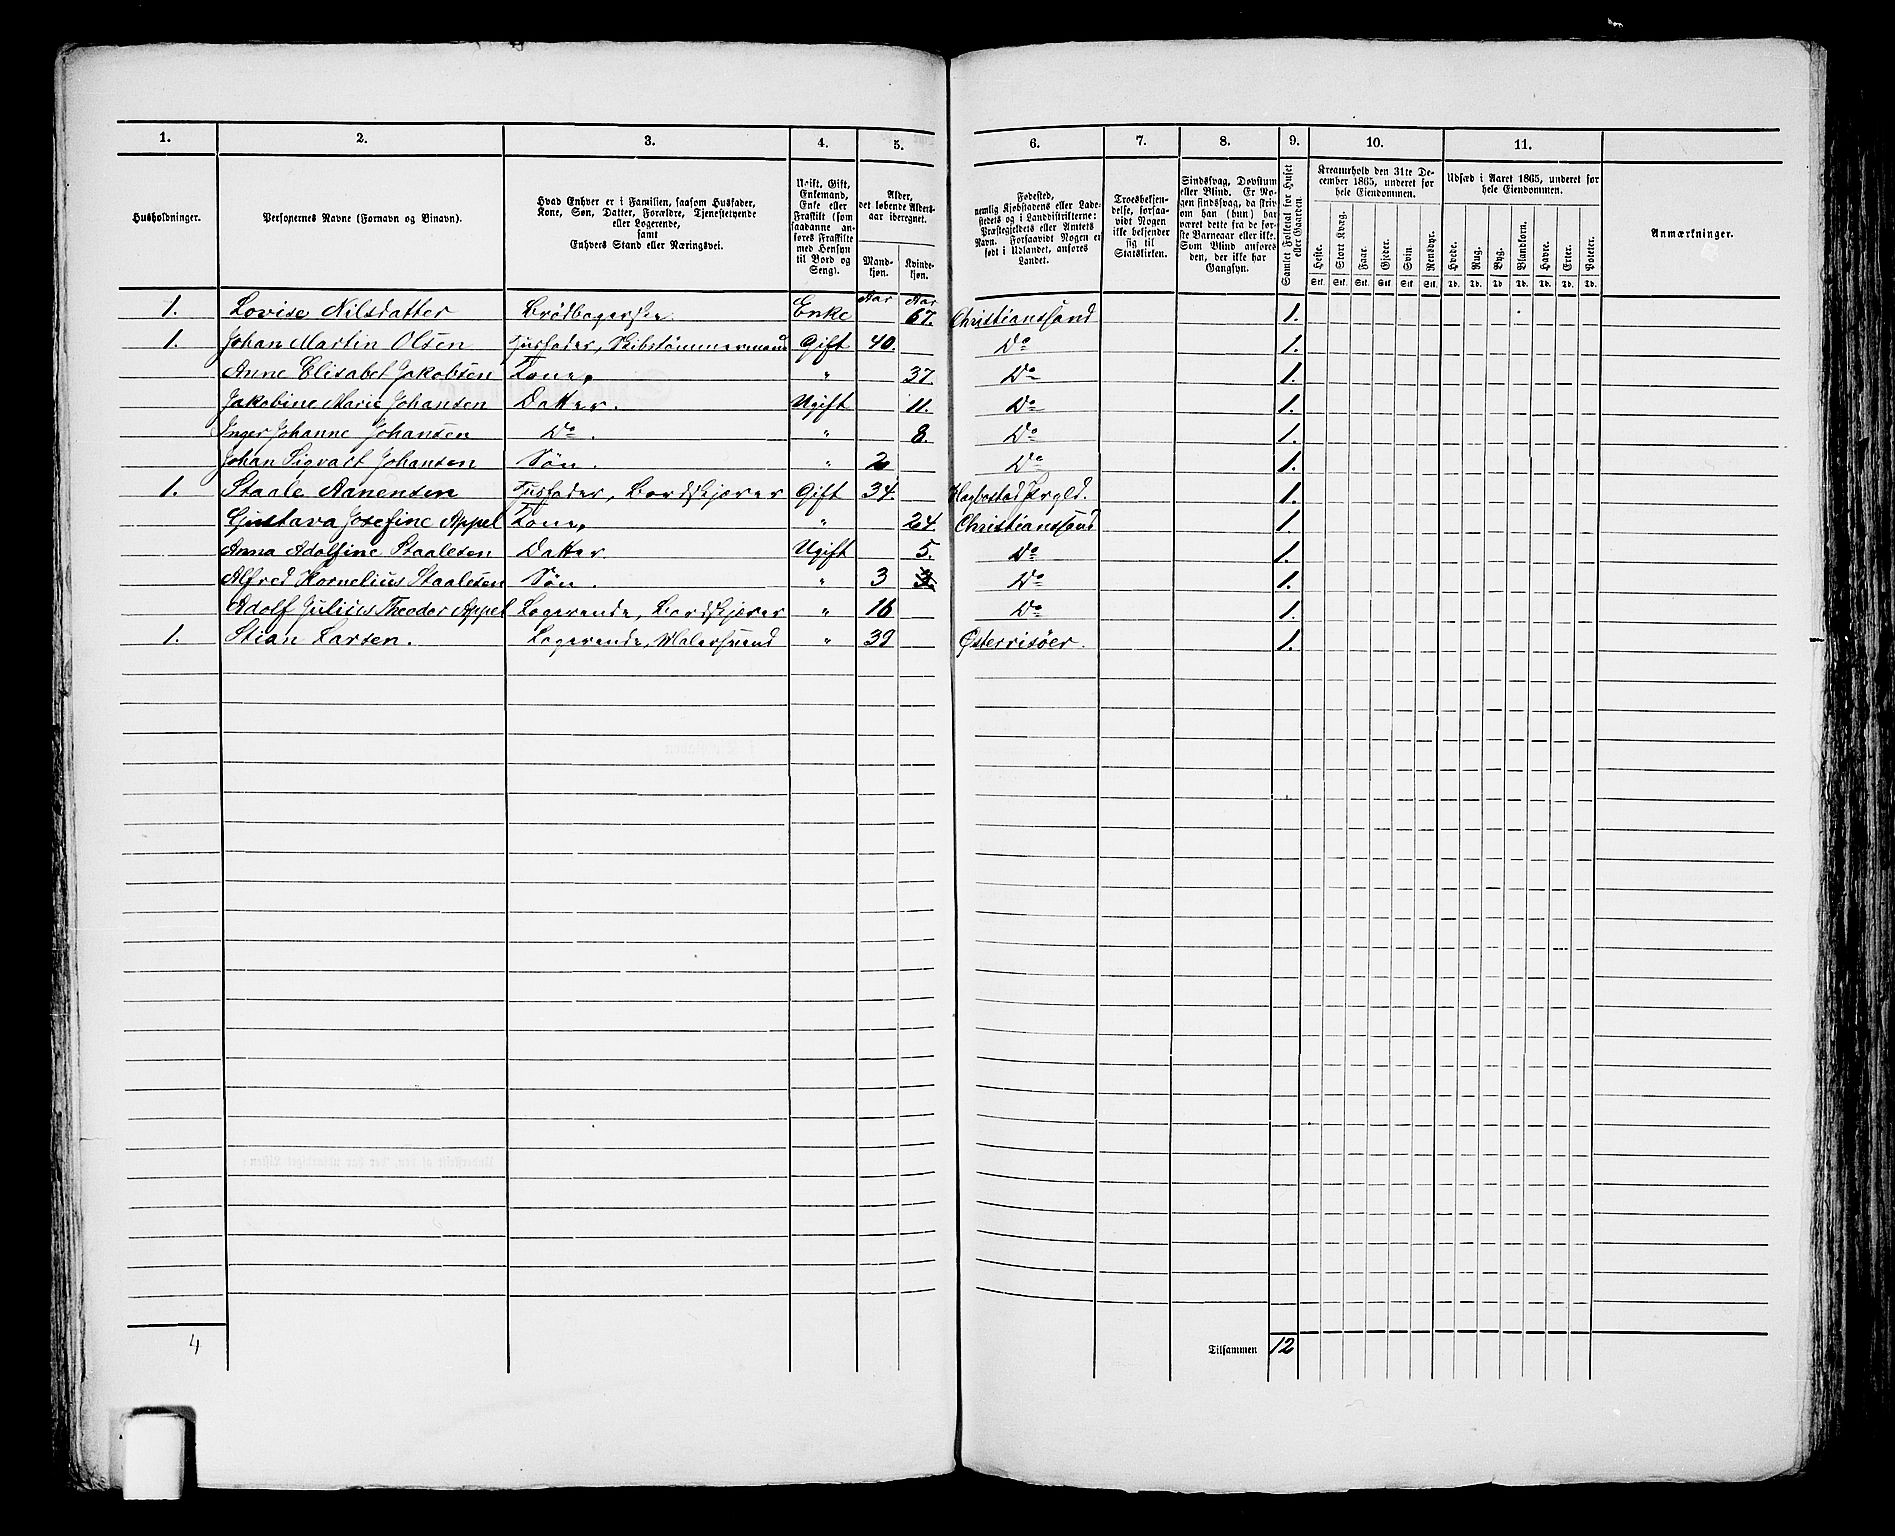 1. 2. 3. 4. 5. 6. 7. 8. 9. 10. 11.
Husholdninger.
Personernes Navne (Fornavn og Binavn).
Hvad Enhver er i Familien, saasom Husfader,
Kone, Søn, Datter, Forældre, Tjenestetyende
eller Logerende,
samt
Enhvers Stand eller Næringsvei.
Ugift, Gift,
Enkemand,
Enke eller
Fraskilt (som
saadanne an-
føres Fraskilte
med Hensyn
til Bord og
Seng).
Alder,
det løbende Alders-
aar iberegnet.
Mand-
kjøn.
Kvinde-
kjøn.
Fødested,
nemlig Kjøbstadens eller Lade-
stedets og i Landdistrikterne:
Præstegjeldets eller Amtets
Navn. Forsaavidt Nogen er
født i Udlandet, anføres
Landet.
Troesbekjen-
delse, forsaa-
vidt Nogen
ikke bekjender
sig til
Statskirken.
Sindssvag, Døvstum
eller Blind. Er No-
gen sindssvag, da skriv
om han (hun) har
været dette fra de før-
ste Barneaar eller ikke.
Som Blind anføres
den, der ikke har
Gangsyn.
Samlet Folketal for Huset
eller Gaarden.
Kreaturhold den 31te De-
cember 1865, underet for
hele Eiendommen.
Heste. Stort Kvæg. Faar. Gjeder. Svin. Rensdyr.
Stk. Stk. Stk. Stk. Stk. Stk.
Udsæd i Aaret 1865, underet for
hele Eiendommen.
Hvede. Rug. Byg. Blandkorn. Havre. Erter. Poteter.
Td. Td. Td. Td. Td. Td. Td.
Anmærkninger.
Aar Aar
1. Lovise Nilsdatter Brødbagerske. Enke 67. Christianssand 1.
1. Johan Martin Olsen Husfader, Skibstømmermand Gift 40. Do 1.
Anne Elisabet Jakobsen Kone. " 37. Do 1.
Jakobine Marie Johansen Datter. Ugift 11. Do 1.
Inger Johanne Johansen Do. " 8. Do 1.
Johan Sigvart Johansen Søn. " 2 Do 1.
1. Staale Aanensen Husfader, Bordskjærer Gift 34. Hægbostad Prgld. 1.
Gustava Josefine Appel Kone. " 24. Christianssand 1.
Anna Adolfine Staalesen Datter Ugift 5. Do 1.
Alfred Kornelius Staalesen Søn. " 3 3. Do 1.
Adolf Julius Theodor Appel Logerende, Bordskjærer " 16 Do 1.
1. Stian Larsen. Logerende, Malersvend " 39 Østerrisøer. 1.
4
Tilsammen 12